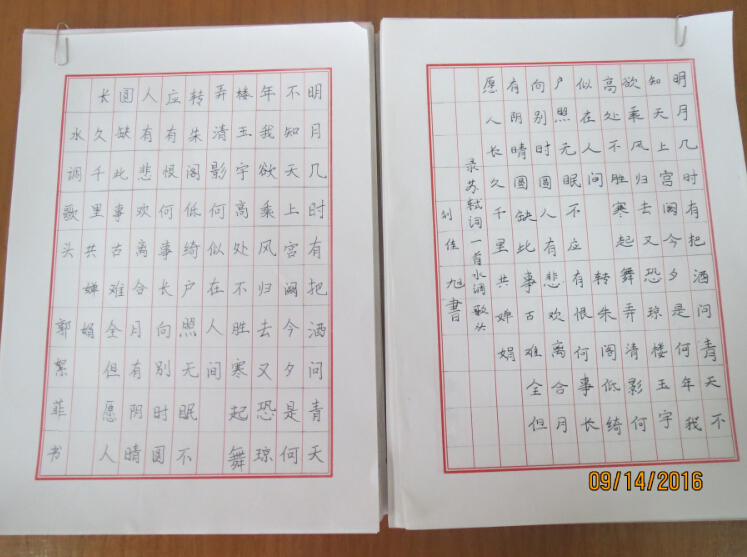 明月几时有把洒问青天
不知天上宫阙今夕是何
年我欲乘风归去又恐琼
楼玉宇高处不胜寒起舞
弄清影何似在人间
转朱阁低绮户照无眠不
应有恨何事长向别时圆
人有悲欢离合月有阴晴
圆缺此事古难全但愿人
长久千里共婵娟
水调歌头 郭絮菲书
明月几时有把洒问青天不
知天上宫阙今夕是何年我
欲乘风归去又恐琼楼玉宇
高处不胜寒起舞弄清影何
似在人间 转朱阁低绮
户照无眠不应有恨何事长
向别时圆人有悲欢离合月
有阴晴圆缺此事古难全但
愿人长久千里共婵娟
录苏轼词一首水调歌头
刘佳旭書
09/14/2016